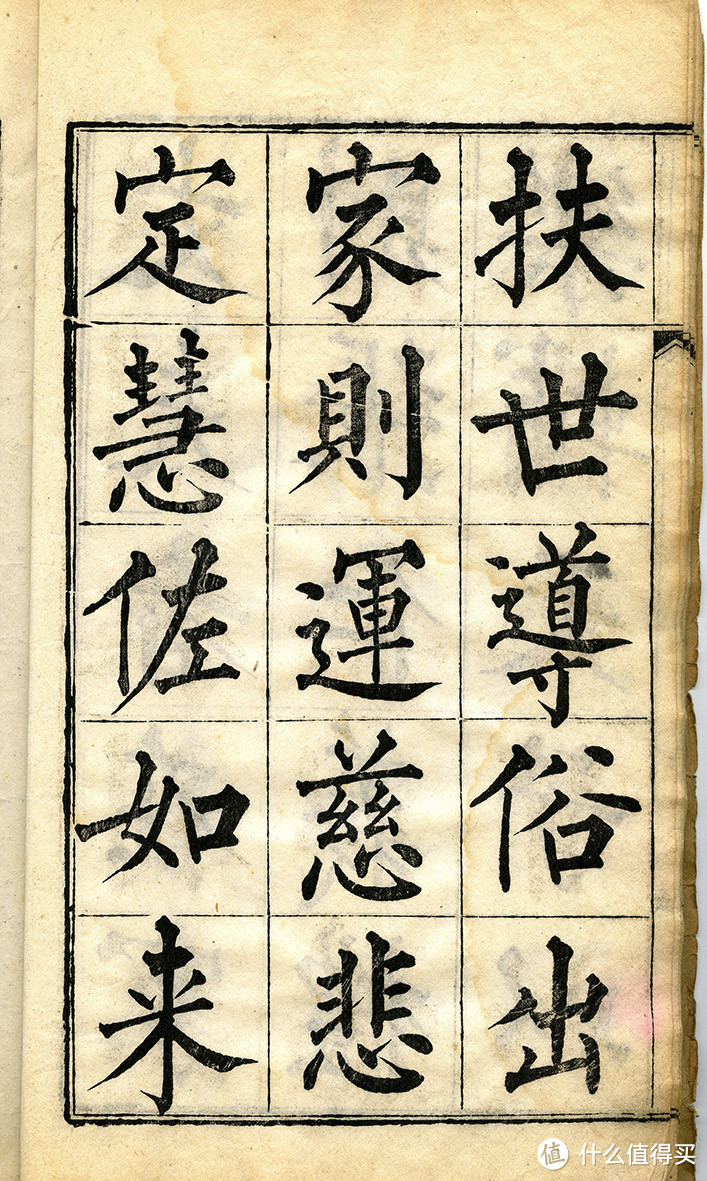 扶世導俗出
家則運慈悲
定慧佐如来
值 什么值得买